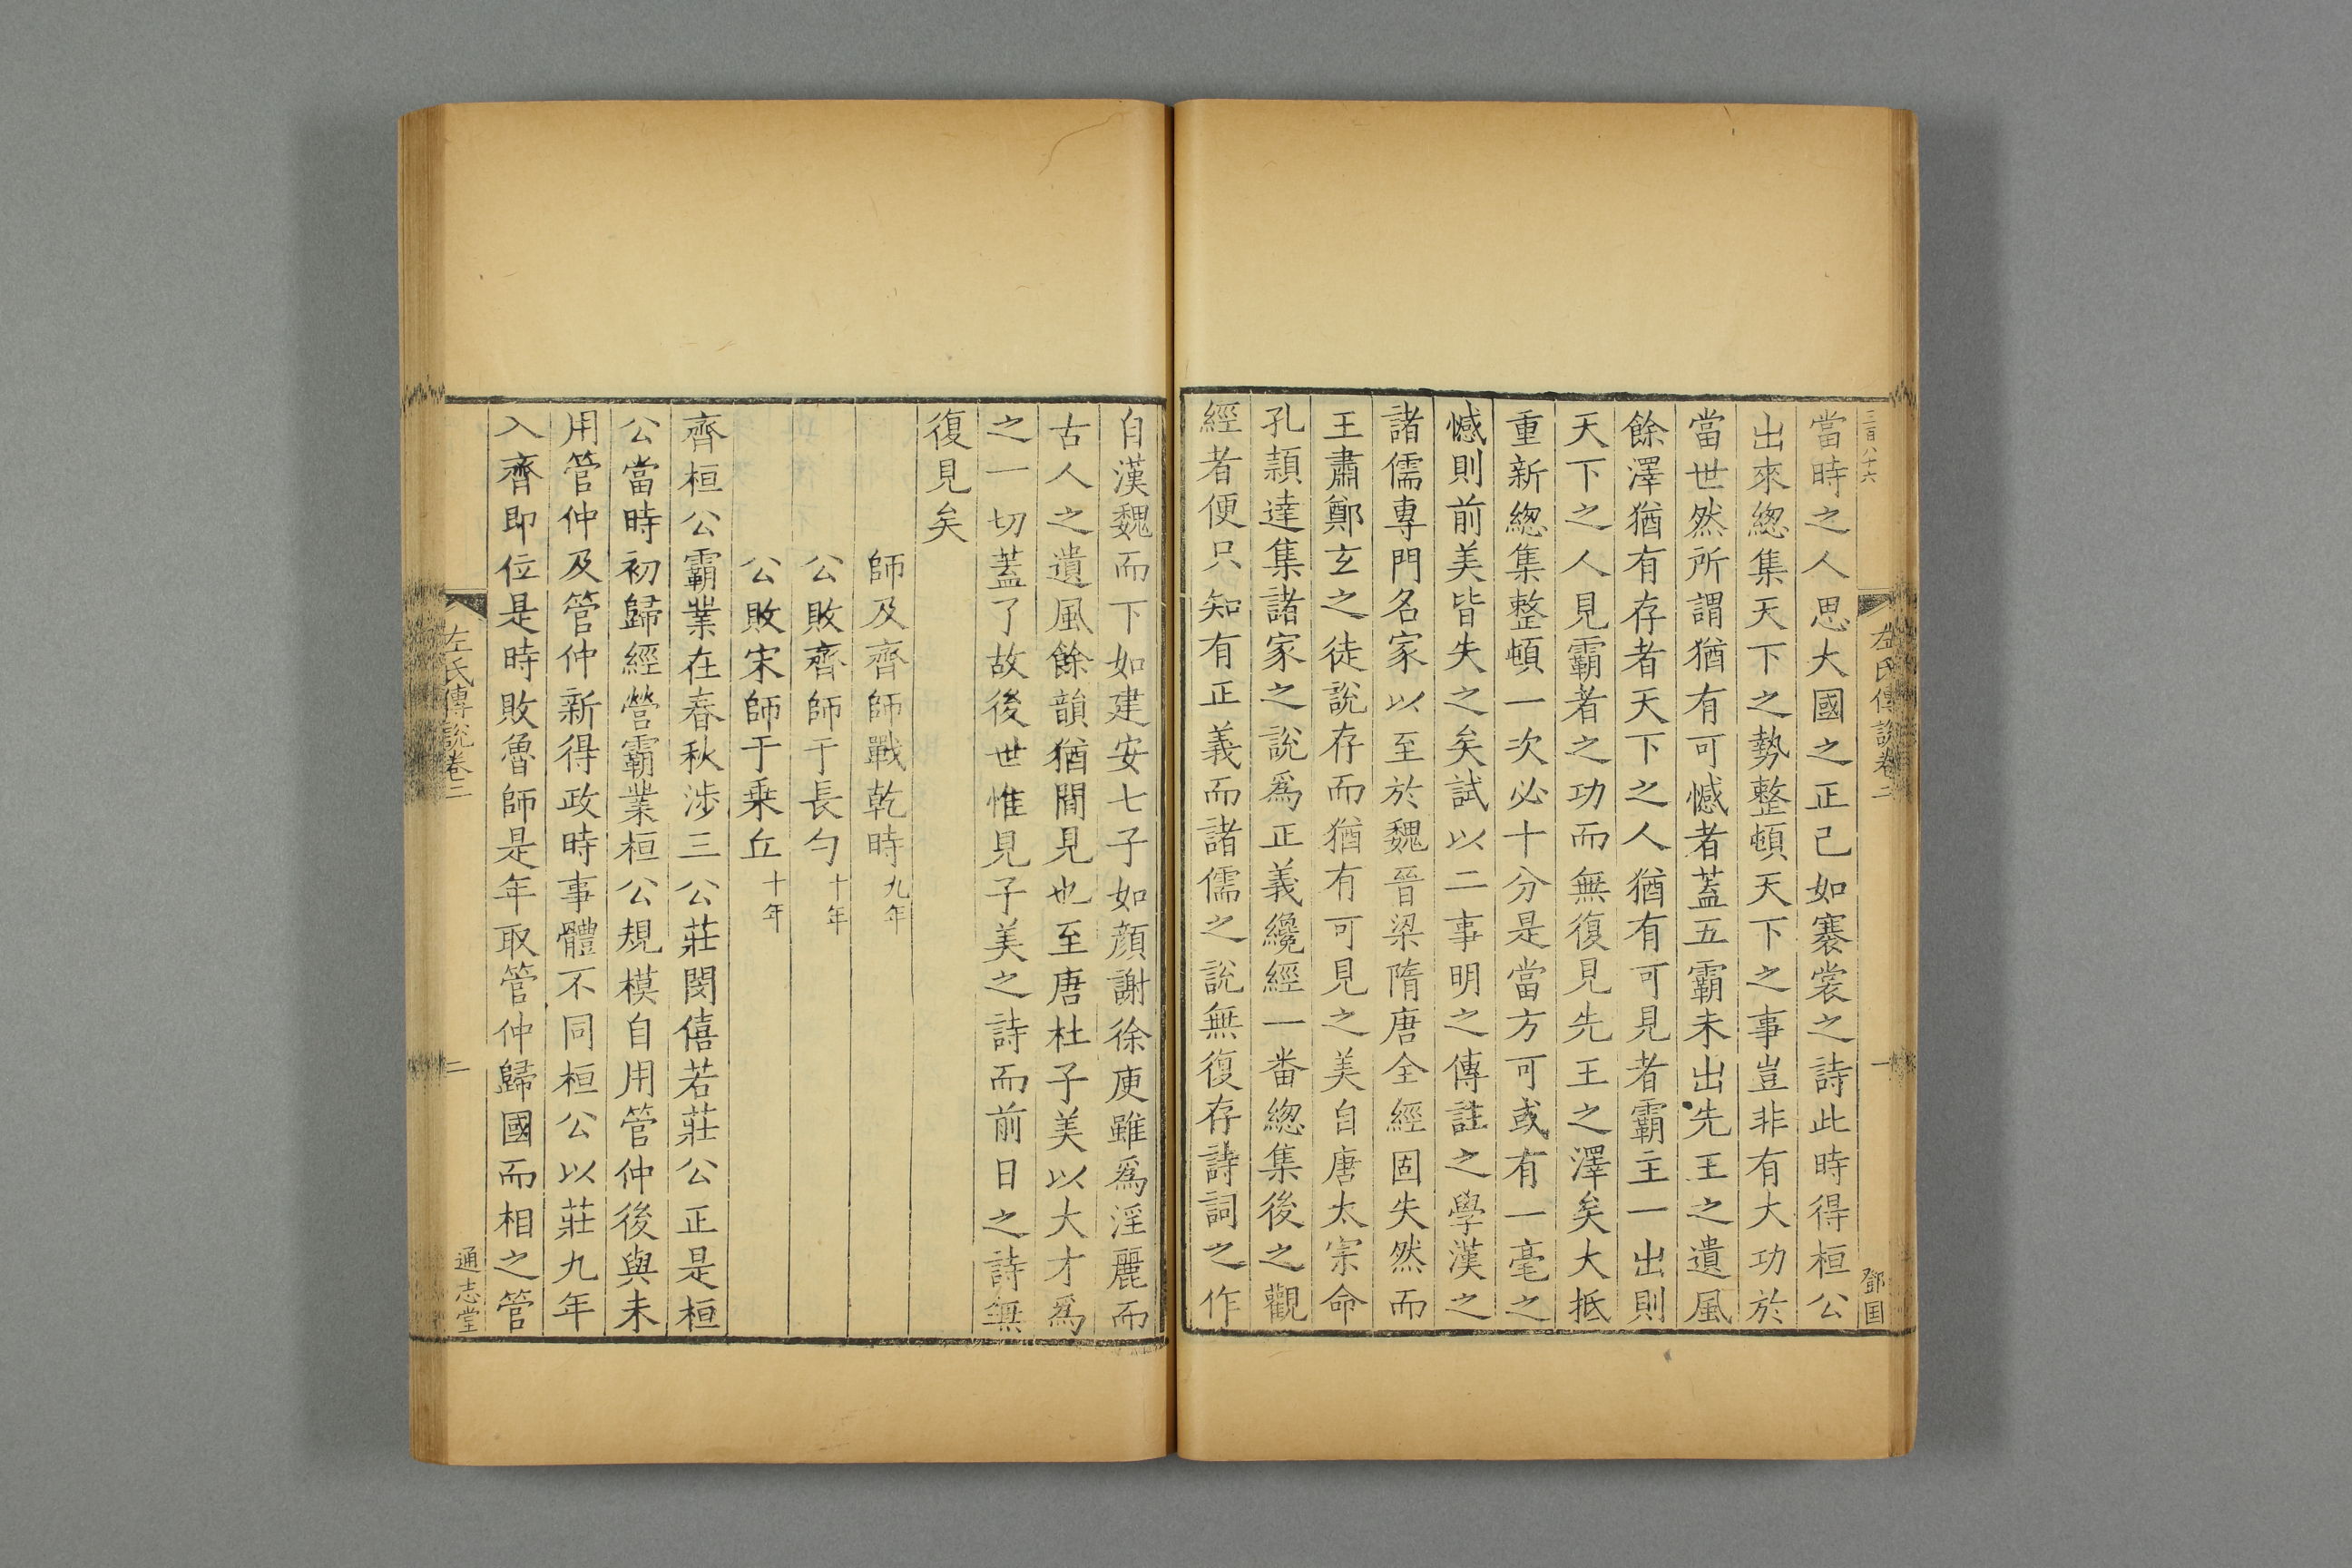 三百八十六
左氏傳說卷二
一
鄧国
當時之人思大國之正己如褰裳之詩此時得桓公
出來緫集天下之勢整頓天下之事豈非有大功於
當世然所謂猶有可憾者蓋五霸未出先王之遺風
餘澤猶有存者天下之人猶有可見者霸主一出則
天下之人見霸者之功而無復見先王之澤矣大抵
重新緫集整頓一次必十分是當方可或有一毫之
憾則前美皆失之矣試以二事明之傳註之學漢之
諸儒專門名家以至於魏晉梁隋唐全經固失然而
王肅鄭玄之徒說存而猶有可見之美自唐太宗命
孔穎達集諸家之說爲正義纔經一番緫集後之觀
經者便只知有正義而諸儒之說無復存詩詞之作
自漢魏而下如建安七子如顏謝徐庾雖爲淫麗而
古人之遺風餘韻猶閒見也至唐杜子美以大才爲
之一切蓋了故後世惟見子美之詩而前日之詩無
復見矣
師及齊師戰乾時九年
公敗齊師于長勺十年
公敗宋師于乗丘十年
齊桓公霸業在春秋涉三公莊閔僖若莊公正是桓
公當時初歸經營霸業桓公規模自用管仲後與未
用管仲及管仲新得政時事體不同桓公以莊九年
入齊即位是時敗魯師是年取管仲歸國而相之管
左氏傳說卷二
二
通志堂